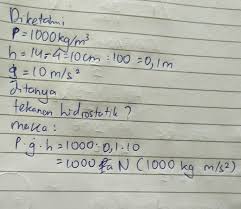 Diketahui
ρ = 1000 kg/m³
h = 14 - 4 = 10cm : 100 = 0,1 m
g = 10 m/s²
ditanya
tekanan hidrostatik ?
maka :
ρ . g . h = 1000 . 0,1 . 10
= 1000 Pa N (1000 kg m/s²)